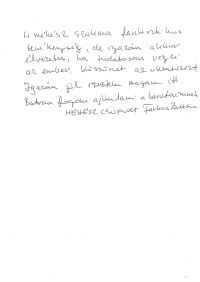 A méhész szakma fantasztikus
tevékenység, de igazán akkor
élvezetes, ha tudatosan végzi
az ember. Köszönet az oktatásért
Igazán jól éreztem magam itt
Bátran fogom ajánlani a barátaimnak
MÉHÉSZ CSOPORT Farkas Zoltán